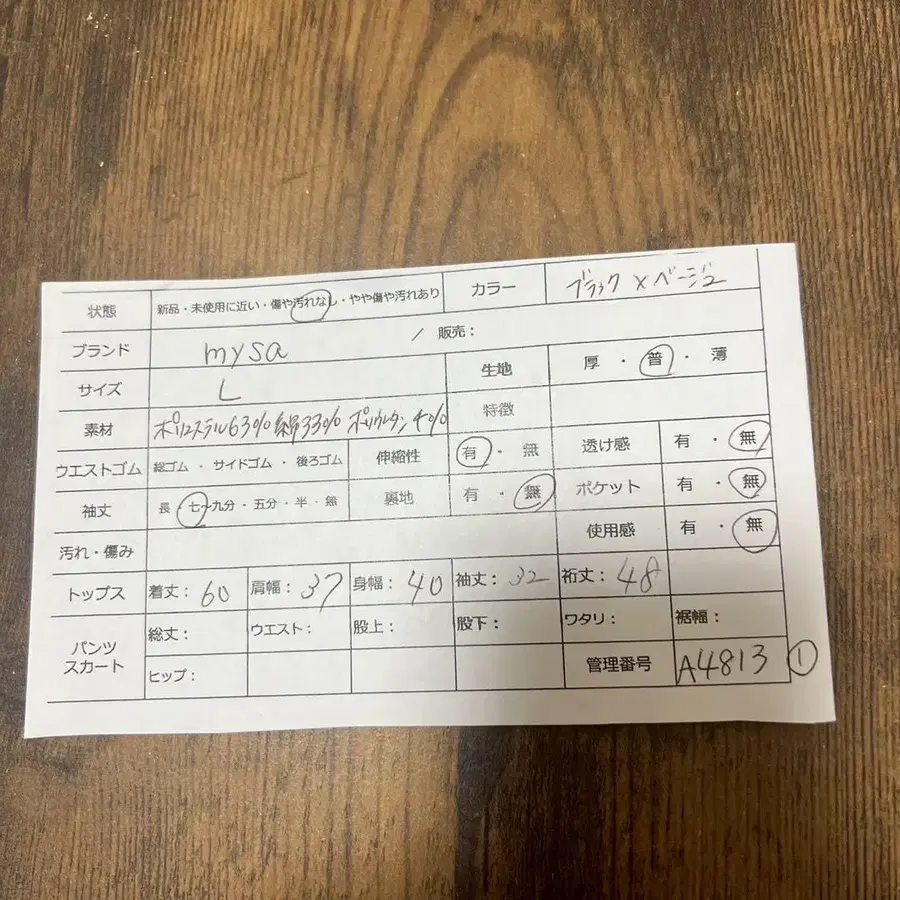 状態 新品・未使用に近い・傷や汚れなし・やや傷や汚れあり カラー ブラック×ベージュ
ブランド mysa / 販売：
サイズ L 生地 厚・普・薄
素材 ポリエステル63% 綿33% ポリウレタン4% 特徴
ウエストゴム 総ゴム・サイドゴム・後ろゴム 伸縮性 有・無 透け感 有・無
袖丈 長・七~九分・五分・半・無 裏地 有・無 ポケット 有・無
汚れ・傷み 使用感 有・無
トップス 着丈：60 肩幅：37 身幅：40 袖丈：32 裄丈：48
パンツ スカート 総丈： ウエスト： 股上： 股下： ワタリ： 裾幅：
ヒップ： 管理番号 A4813 ①